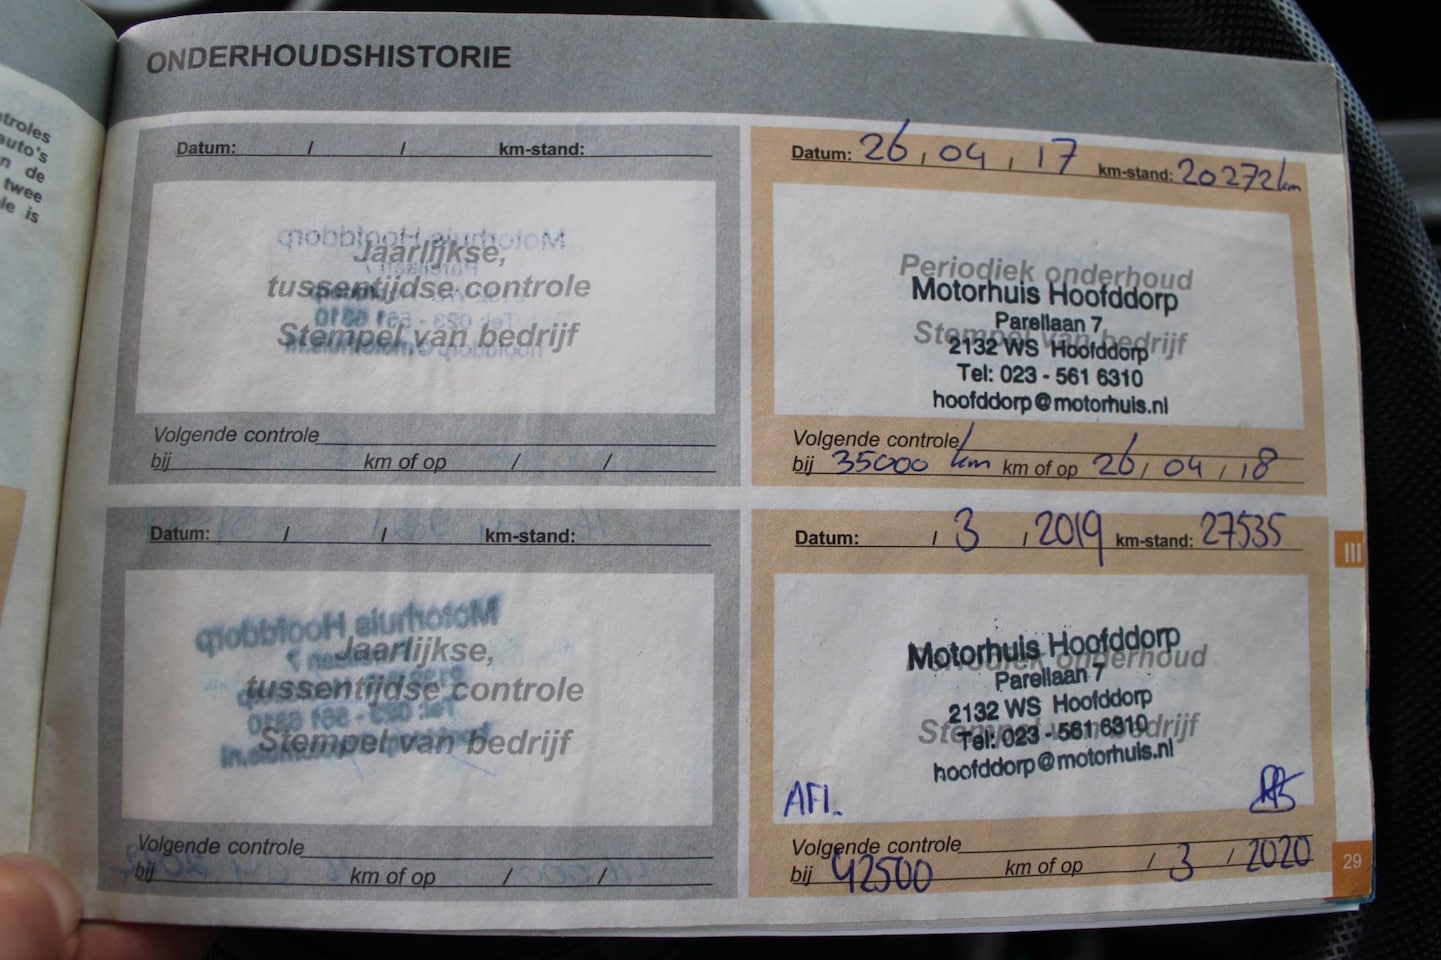 troles
auto's
n de
twee
le is
ONDERHOUDSHISTORIE
Datum: / / km-stand:
Jaarlijkse,
tussentijdse controle
Stempel van bedrijf
Volgende controle
bij km of op / /
Datum: 26 , 04 , 17 km-stand: 20272 km
Periodiek onderhoud
Motorhuis Hoofddorp
Parellaan 7
Stempel van bedrijf
2132 WS Hoofddorp
Tel: 023 - 561 6310
hoofddorp@motorhuis.nl
Volgende controle
bij 35000 km km of op 26 , 04 , 18
Datum: / / km-stand:
Jaarlijkse,
tussentijdse controle
Stempel van bedrijf
Volgende controle
bij km of op / /
Datum: / 3 , 2019 km-stand: 27535
Motorhuis Hoofddorp
Periodiek onderhoud
Parellaan 7
2132 WS Hoofddorp
Stempel van bedrijf
Tel: 023 - 561 6310
hoofddorp@motorhuis.nl
AFL.
Volgende controle
bij 42500 km of op / 3 / 2020
III
29